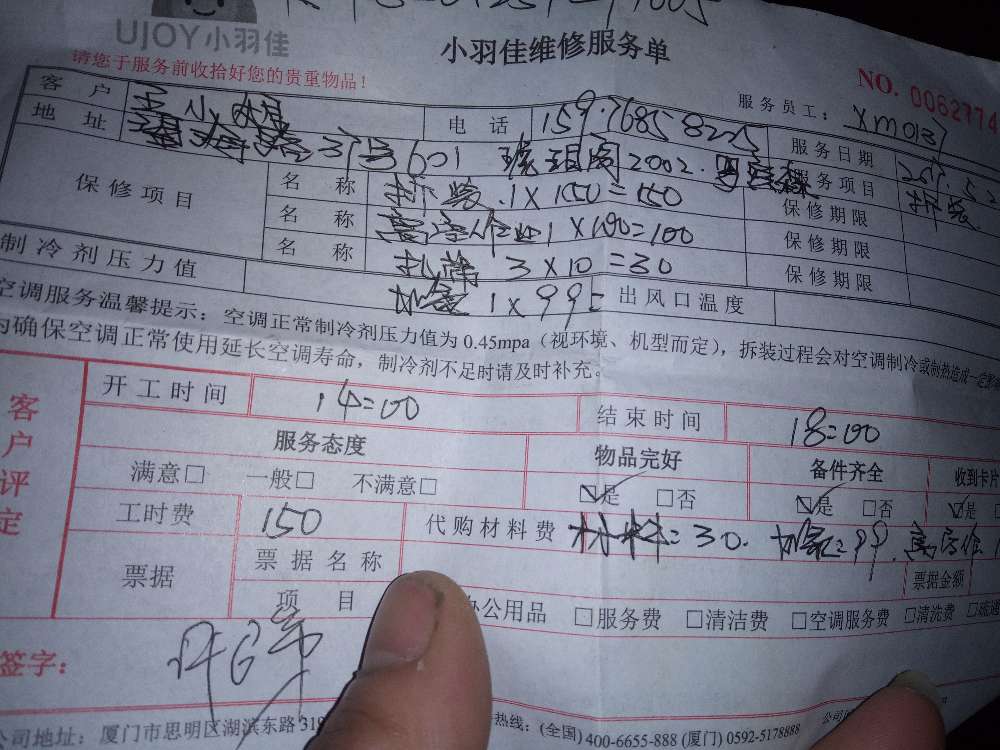 UJOY小羽佳
小羽佳维修服务单
请您于服务前收拾好您的贵重物品！
NO. 0062774
服务员工： XM0137
客户
电话 159.7685 8225 服务日期
地址 37号601 2002. 服务项目 拆装
保修项目 名称 拆装 1X150=150 保修期限
名称 高空作业1X100=100 保修期限
名称 3X10=30 保修期限
制冷剂压力值 加氟 1X99= 出风口温度
空调服务温馨提示：空调正常制冷剂压力值为 0.45mpa（视环境、机型而定），拆装过程会对空调制冷或制热造成一定
为确保空调正常使用延长空调寿命，制冷剂不足时请及时补充。
客户评定
开工时间 14:00 结束时间 18:00
服务态度 物品完好 备件齐全 收到卡片
满意□ 一般□ 不满意□ ☑是 □否 ☑是 □否 ☑是
工时费 150 代购材料费 材料=30. 加氟=99.
票据 票据名称 票据金额
项目 办公用品 □服务费 □清洁费 □空调服务费 □清洗费
签字：
公司地址：厦门市思明区湖滨东路 319 热线：(全国) 400-6655-888 (厦门) 0592-5178888